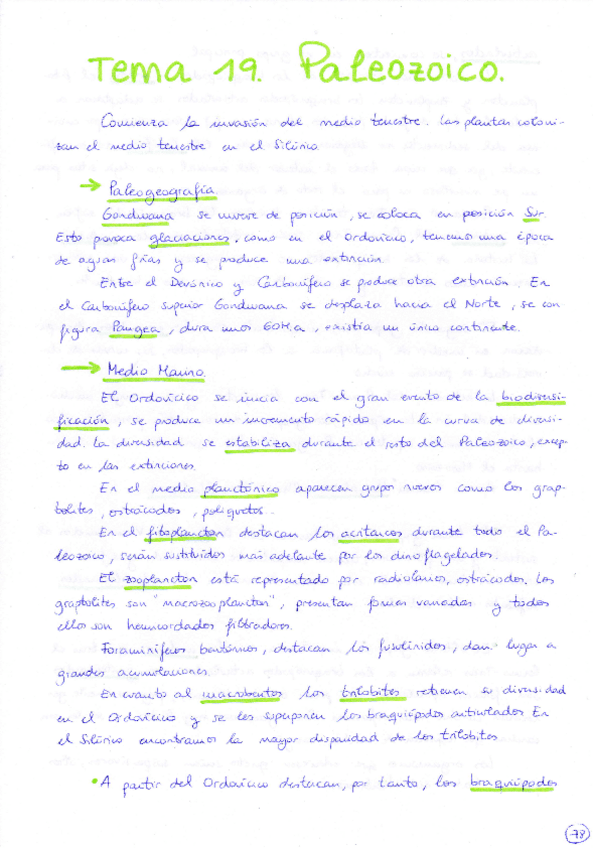 Tema 19. Paleozoico.
Comienza la invasión del medio terrestre. Las plantas coloni-
zan el medio terrestre en el Silúrico.
→ Paleogeografía.
Gondwana se mueve de posición, se coloca en posición Sur.
Esto provoca glaciaciones, como en el Ordovícico, tenemos una época
de aguas frías y se produce una extinción.
Entre el Devónico y Carbonífero se produce otra extinción. En
el Carbonífero superior Gondwana se desplaza hacia el Norte, se con-
figura Pangea, dura unos 60 M.a, existía un único continente.
→ Medio Marino.
El Ordovícico se inicia con el gran evento de la biodiversi-
ficación, se produce un incremento rápido en la curva de diversi-
dad. La diversidad se estabiliza durante el resto del Paleozoico, excep-
to en las extinciones.
En el medio planctónico aparecen grupos nuevos como los grap-
tolites, ostrácodos, poliquetos...
En el fitoplancton destacan los acritarcos durante todo el Pa-
leozoico, serán sustituidos más adelante por los dinoflagelados.
El zooplancton está representado por radiolarios, ostrácodos. Los
graptolites son "macrozooplancton", presentan formas variadas y todos
ellos son hemicordados filtradores.
Foraminíferos bentónicos, destacan los fusulínidos, dan lugar a
grandes acumulaciones.
En cuanto al macrobentos los trilobites retienen su diversidad
en el Ordovícico y se les superponen los braquiópodos articulados. En
el Silúrico encontramos la mayor disparidad de los trilobites.
• A partir del Ordovícico destacan, por tanto, los braquiópodos
78